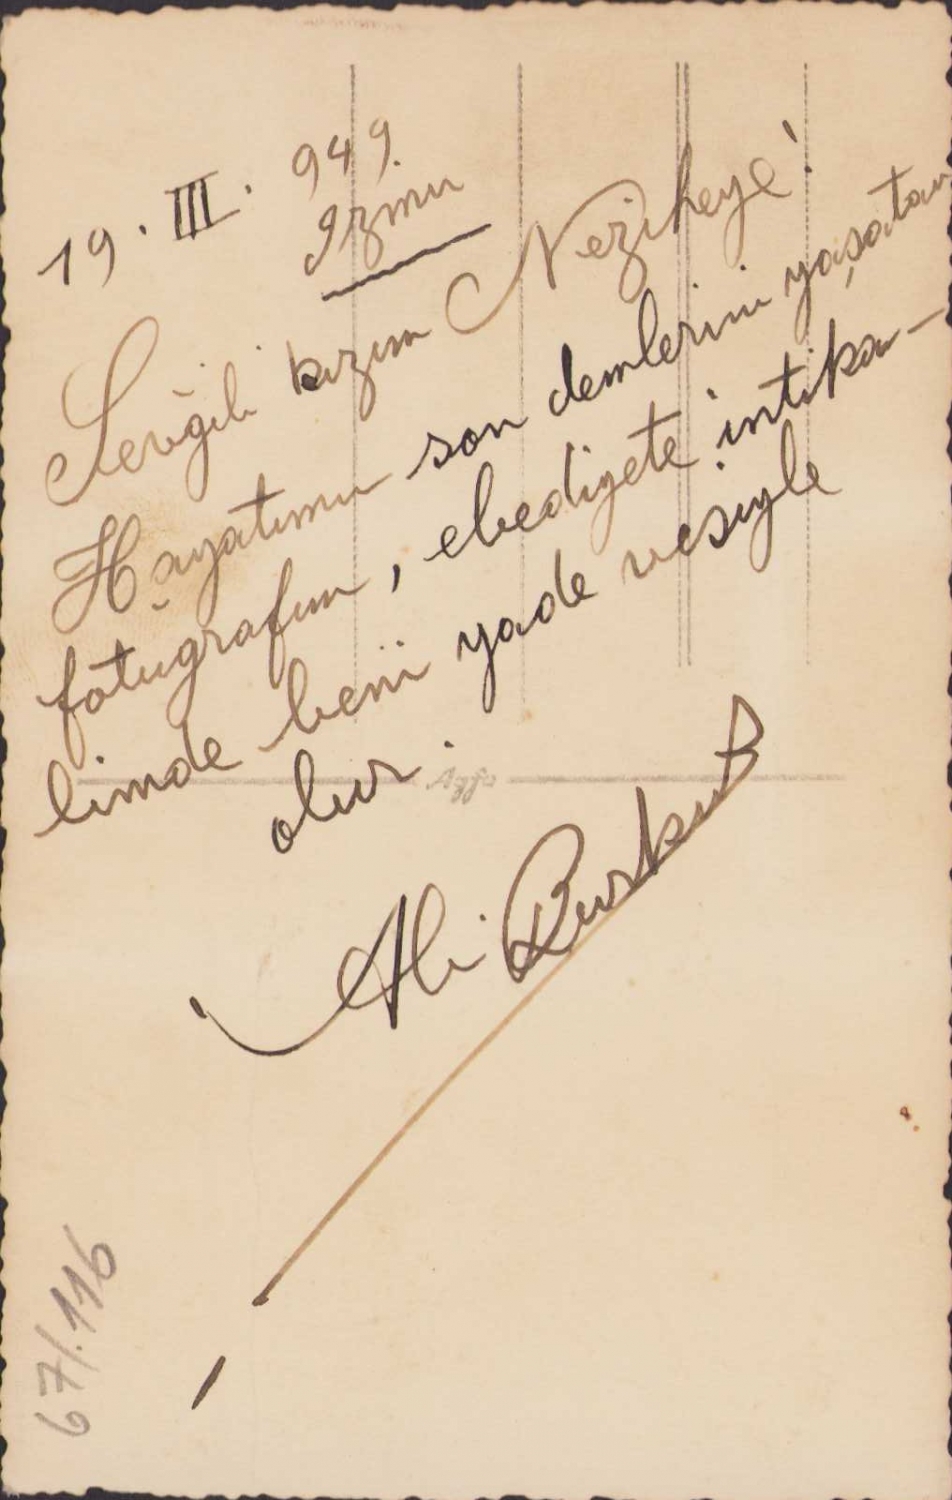 19. III. 949.
Izmir
Sevgili kızım Neziheye!
Hayatımın son demlerini yaşatan
fotugrafım, ebediyete intika-
limde beni yade vesiyle
olur.
Agfa
Ali Burkut
67/.116